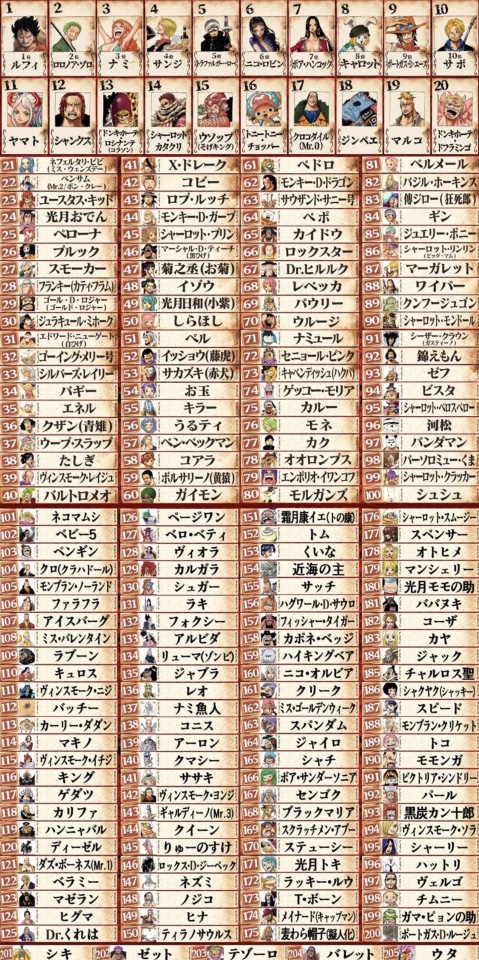 1 2 3 4 5 6 7 8 9 10
1位 2位 3位 4位 5位 6位 7位 8位 9位 10位
ルフィ ロロノア・ゾロ ナミ サンジ トラファルガー・ロー ニコ・ロビン ボア・ハンコック キャロット ポートガス・D・エース サボ
11 12 13 14 15 16 17 18 19 20
ヤマト シャンクス ドンキホーテ ロシナンテ (コラソン) シャーロット カタクリ ウソップ (そげキング) トニートニー チョッパー クロコダイル (Mr.0) ジンベエ マルコ ドンキホーテ ドフラミンゴ
21 ネフェルタリ・ビビ (ミス・ウェンズデー)
22 ベンサム (Mr.2/ボン・クレー)
23 ユースタス・キッド
24 光月おでん
25 ペローナ
26 ブルック
27 スモーカー
28 フランキー(カティ・フラム)
29 ゴール・D・ロジャー (ゴールド・ロジャー)
30 ジュラキュール・ミホーク
31 エドワード・ニューゲート (白ひげ)
32 ゴーイング・メリー号
33 シルバーズ・レイリー
34 バギー
35 エネル
36 クザン(青雉)
37 ウープ・スラップ
38 たしぎ
39 ヴィンスモーク・レイジュ
40 バルトロメオ
41 X・ドレーク
42 コビー
43 ロブ・ルッチ
44 モンキー・D・ガープ
45 シャーロット・プリン
46 マーシャル・D・ティーチ (黒ひげ)
47 菊之丞(お菊)
48 イゾウ
49 光月日和(小紫)
50 しらほし
51 ペル
52 イッショウ(藤虎)
53 サカズキ(赤犬)
54 お玉
55 キラー
56 うるティ
57 ベン・ベックマン
58 コアラ
59 ボルサリーノ(黄猿)
60 ガイモン
62 ペドロ
62 モンキー・D・ドラゴン
63 サウザンド・サニー号
64 ベポ
65 カイドウ
66 ロックスター
67 Dr.ヒルルク
68 レベッカ
69 パウリー
70 ウルージ
71 ナミュール
72 セニョール・ピンク
73 キャベンディッシュ(ハクバ)
74 ゲッコー・モリア
75 カルー
76 モネ
77 カク
78 オオロンブス
79 エンポリオ・イワンコフ
80 モルガンズ
81 ベルメール
82 バジル・ホーキンス
83 傳ジロー(狂死郎)
84 ギン
85 ジュエリー・ボニー
86 シャーロット・リンリン (ビッグ・マム)
87 マーガレット
88 ワイパー
89 クンフージュゴン
90 シャーロット・モンドール
91 シーザー・クラウン (ガスティーノ)
92 錦えもん
93 ゼフ
94 ビスタ
95 シャーロット・ペロスペロー
96 河松
97 パンダマン
98 バーソロミュー・くま
99 シャーロット・クラッカー
100 シュシュ
101 ネコマムシ
102 ベビー5
103 ペンギン
104 クロ(クラハドール)
105 モンブラン・ノーランド
106 ファラフラ
107 アイスバーグ
108 ミス・バレンタイン
109 ラブーン
110 キュロス
111 ヴィンスモーク・ニジ
112 バッチー
113 カーリー・ダダン
114 マキノ
115 ヴィンスモーク・イチジ
116 キング
117 ゲダツ
118 カリファ
119 ハンニャバル
120 ディーゼル
121 ダズ・ボーネス(Mr.1)
122 ベラミー
123 マゼラン
124 ヒグマ
125 Dr.くれは
126 ページワン
127 ベロ・ベティ
128 ヴィオラ
129 カルガラ
130 シュガー
131 ラキ
132 フォクシー
133 アルビダ
134 リューマ(ゾンビ)
135 ジャブラ
136 レオ
137 ナミ魚人
138 コニス
139 アーロン
140 クマシー
141 ササキ
142 ヴィンスモーク・ヨンジ
143 ギャルディーノ(Mr.3)
144 クイーン
145 りゅーのすけ
146 ロックス・D・ジーベック
147 ネズミ
148 ノジコ
149 ヒナ
150 ティラノサウルス
151 霜月康イエ(トの康)
152 トム
153 くいな
154 近海の主
155 サッチ
156 ハグワール・D・サウロ
157 フィッシャー・タイガー
158 カポネ・ベッジ
159 ハイキングベア
160 ニコ・オルビア
161 クリーク
162 ミス・ゴールデンウィーク
163 スパンダム
164 ジャイロ
165 シャチ
166 ボア・サンダーソニア
167 センゴク
168 ブラックマリア
169 スクラッチメン・アプー
170 ステューシー
171 光月トキ
172 ラッキー・ルウ
173 T・ボーン
174 メイナード(キャップマン)
175 麦わら帽子(擬人化)
176 シャーロット・スムージー
177 スペンサー
178 オトヒメ
179 マンシェリー
180 光月モモの助
181 ババヌキ
182 コーザ
183 カヤ
184 ジャック
185 チャルロス聖
186 シャクヤク(シャッキー)
187 スピード
188 モンブラン・クリケット
189 トコ
190 モモンガ
191 ビクトリア・シンドリー
192 パール
193 黒炭カン十郎
194 ヴィンスモーク・ソラ
195 シャーリー
196 ハットリ
197 ヴェルゴ
198 チムニー
199 ガマ・ピョンの助
200 ポートガス・D・ルージュ
201 シキ 202 ゼット 203 テゾーロ 204 バレット 205 ウタ